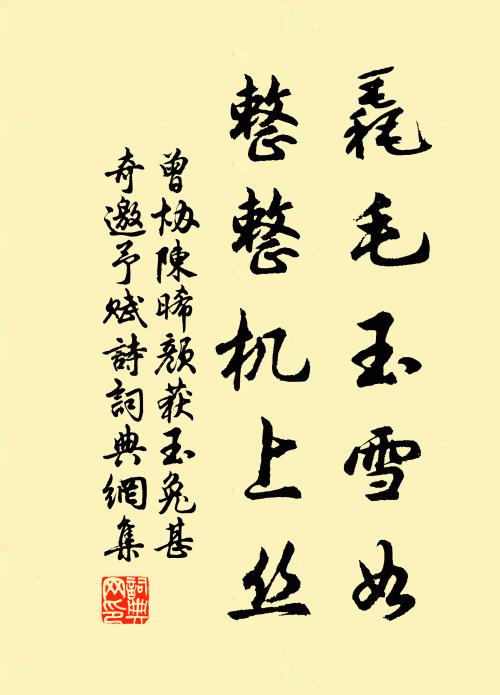 毳毛玉雪如
整整机上丝
曾协陳晞颜获玉兔甚
奇邀予赋詩詞典網集
詞典网印